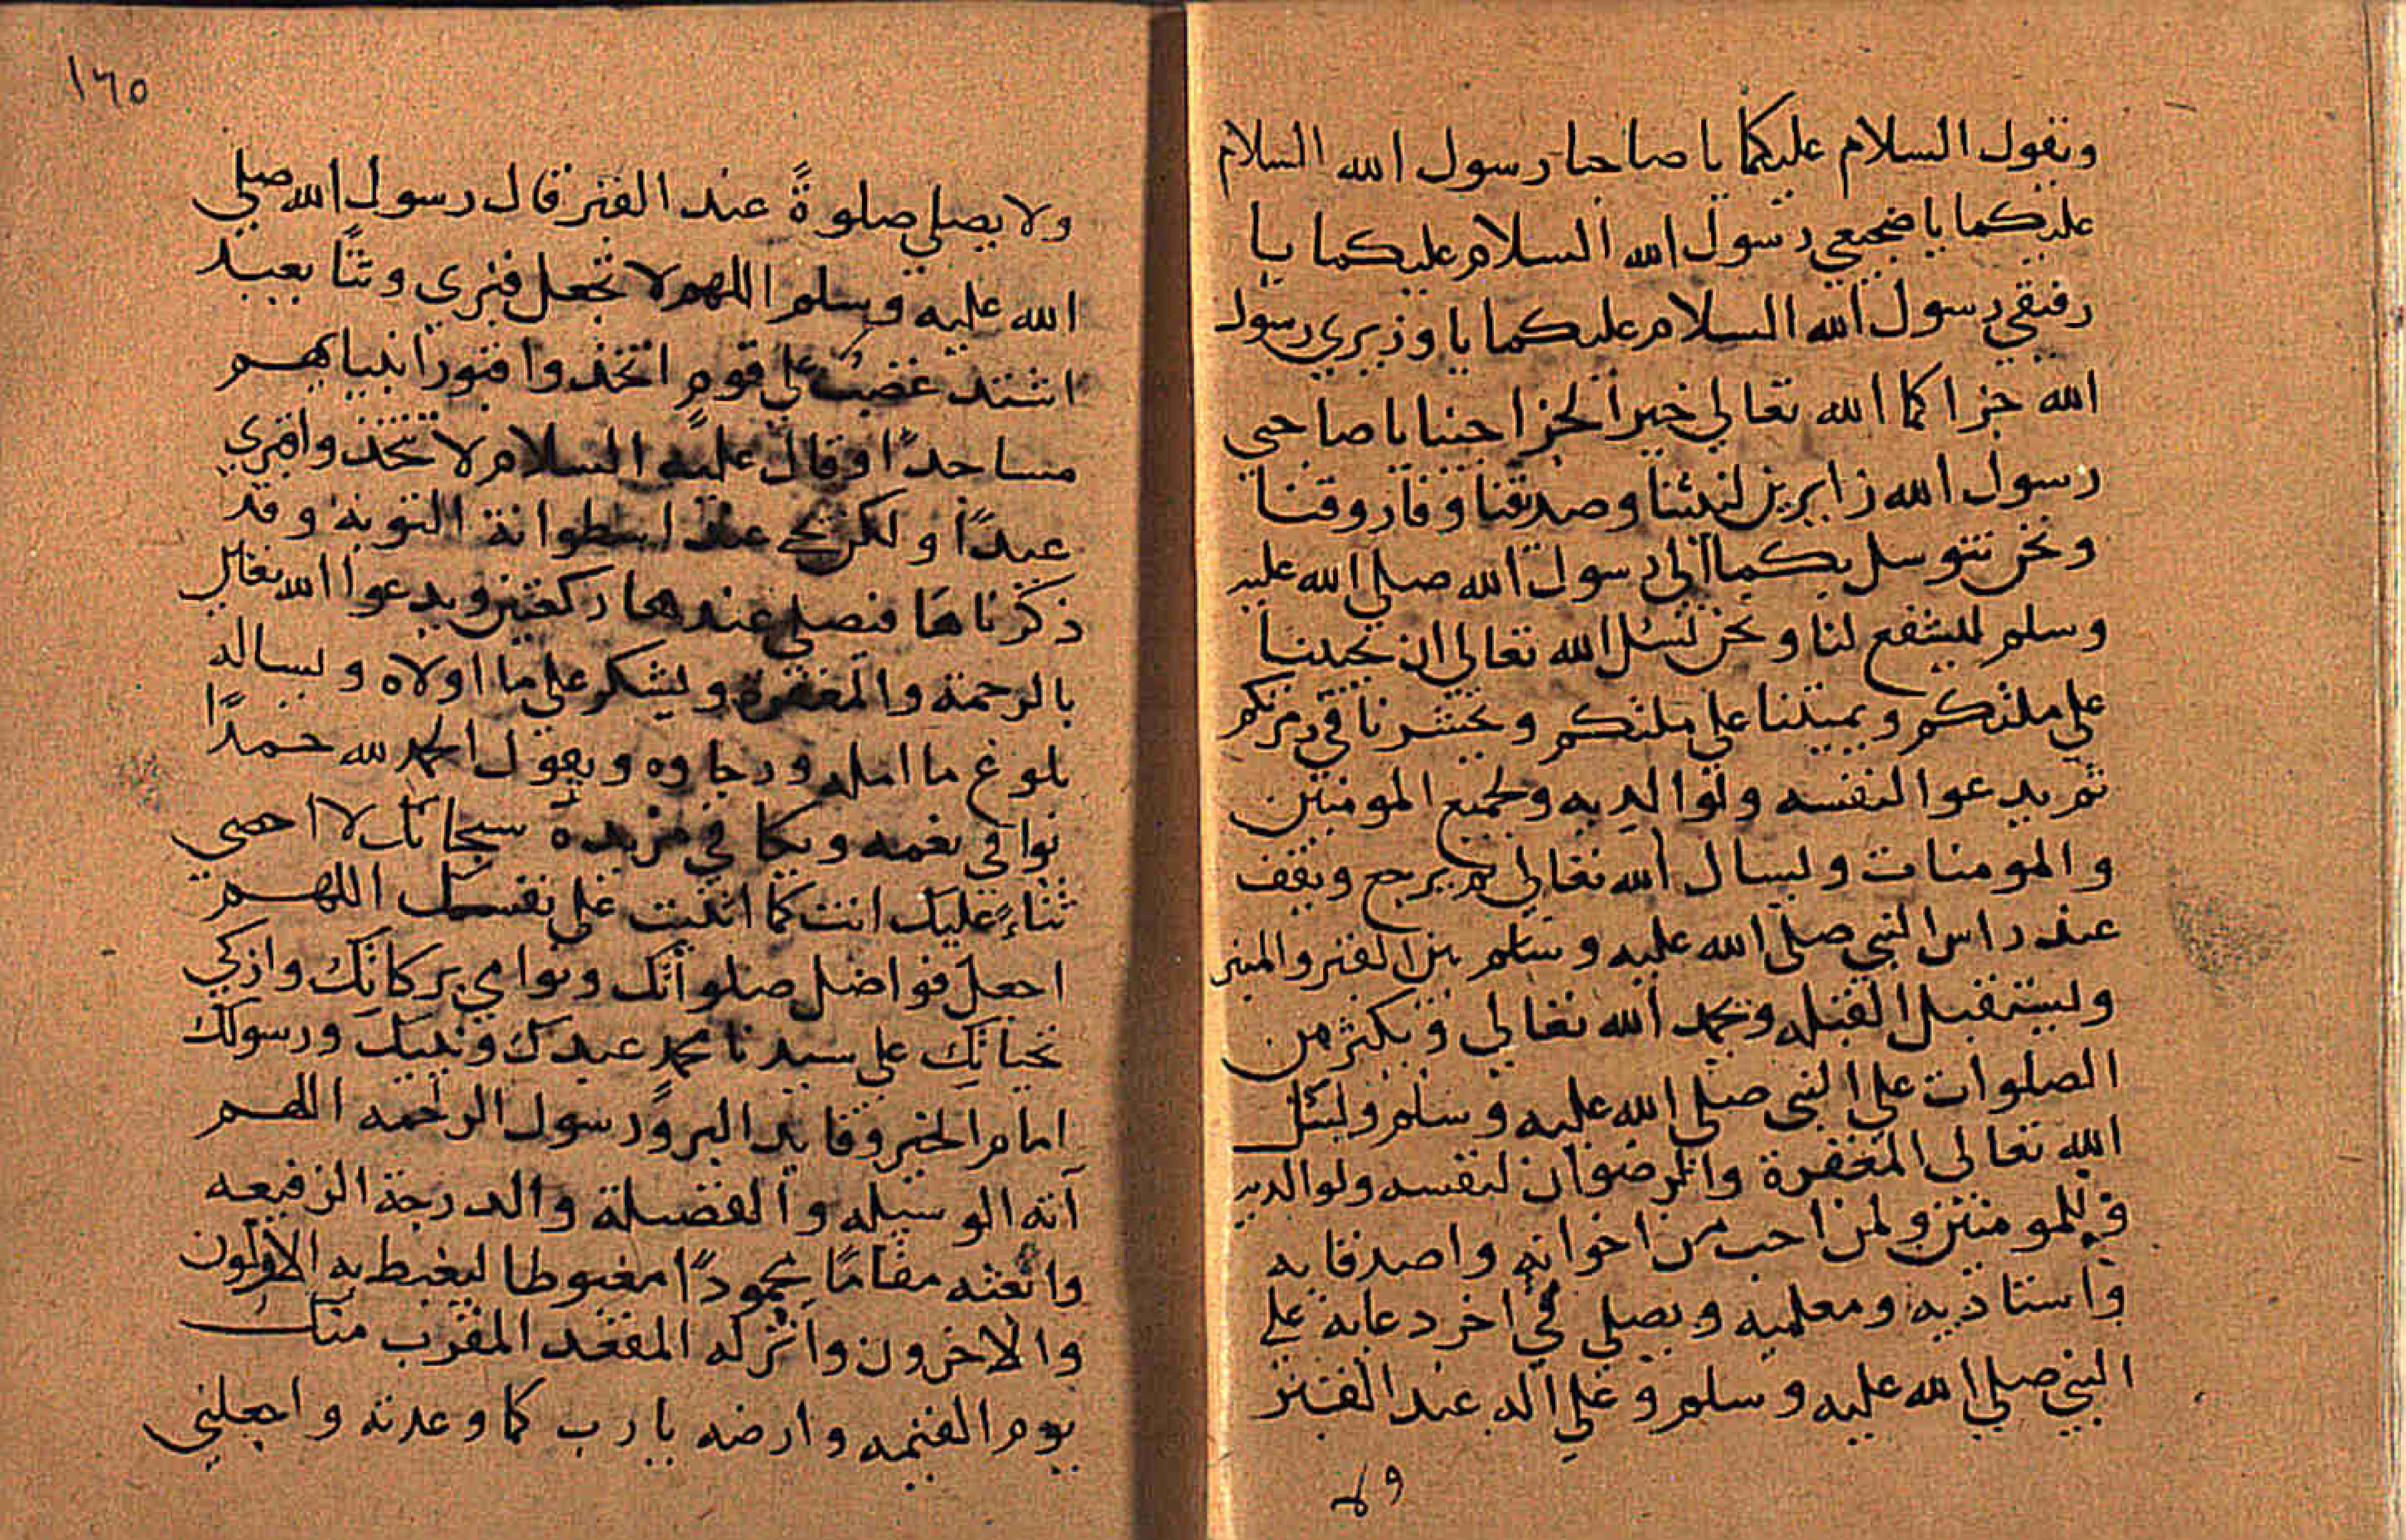 ونقول السلام عليكما يا صاحبا رسول الله السلام
عليكما يا ضجيعي رسول الله السلام عليكما يا
رفيقي رسول الله السلام عليكما يا وزيري رسول
الله جزاكما الله تعالى خير الجزا جينا يا صاحبي
رسول الله زايرين لنبينا وصديقنا وفاروقنا
ونحن نتوسل بكما الى رسول الله صلى الله عليه
وسلم ليشفع لنا ونحن نسئل الله تعالى ان يحيينا
على ملتكم ويميتنا على ملتكم ويحشرنا في زمرتكم
ثم يدعوا لنفسه ولوالديه ولجميع المومنين
والمومنات ويسال الله تعالى ثم يرجع ويقف
عند راس النبي صلى الله عليه وسلم بين القبر والمنبر
ويستقبل القبله ويحمد الله تعالى ويكثر من
الصلوات على النبي صلى الله عليه وسلم ويسئل
الله تعالى المغفرة والرضوان لنفسه ولوالديه
وللمومنين ولمن احب من اخوانه واصدقايه
واستاذيه ومعلميه ويصلي في اخر دعايه على
النبي صلى الله عليه وسلم وعلى اله عند القبر
ولا
١٦٥
ولا يصلي صلوةً عند القبر قال رسول الله صلى
الله عليه وسلم اللهم لا تجعل قبري وثنًا يعبد
اشتد غضب على قوم اتخذوا قبور انبيايهم
مساجدًا وقال عليه السلام لا تتخذوا قبري
عيدًا ولكن يجي عند اسطوانة التوبة وقد
ذكرناها فيصلي عندها ركعتين ويدعوا الله تعالى
بالرحمة والمغفرة ويشكر على ما اولاه ويساله
بلوغ ما امله ورجاوه ويقول الحمد لله حمدًا
يوافي نعمه ويكافي مزيده سبحانك لا احصي
ثناءً عليك انت كما اثنيت على نفسك اللهم
اجعل فواضل صلواتك ونوامي بركاتك وازكى
تحياتك على سيدنا محمد عبدك ونبيك ورسولك
امام الخير وقايد البر ورسول الرحمه اللهم
آته الوسيله والفضيلة والدرجة الرفيعه
وابعثه مقامًا محمودًا مغبوطا ليغبط به الاولون
والاخرون وانزله المقعد المقرب منك
يوم القيمه وارضه يا رب كما وعدته واجعلني